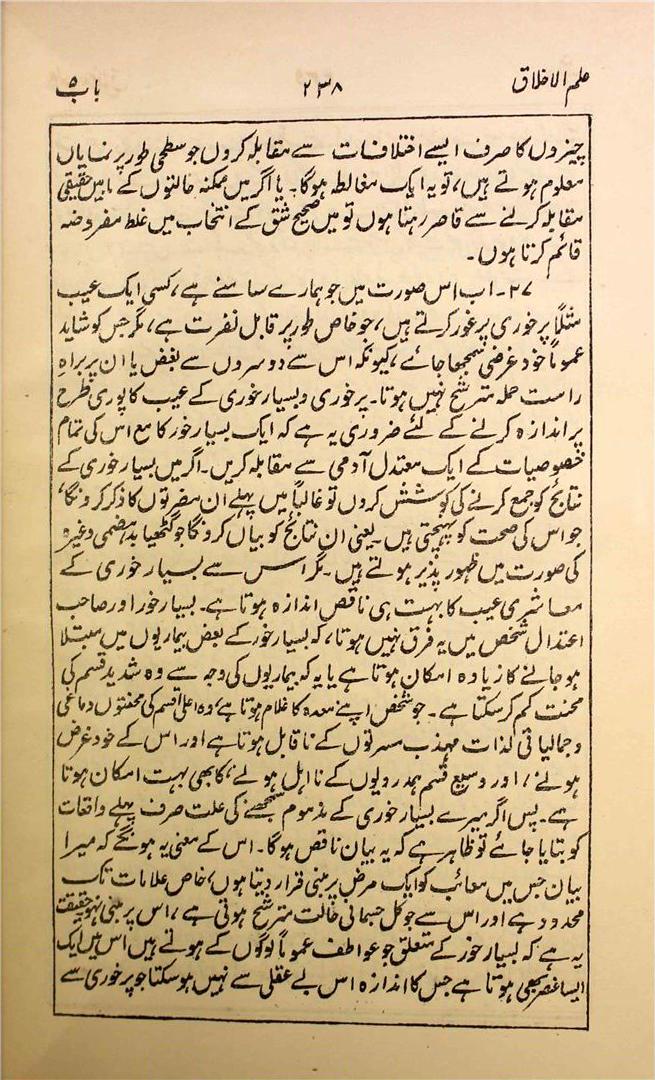 علم الاخلاق ۲۳۸ باب ۵
چیزوں کا صرف ایسے اختلافات سے مقابلہ کروں جو سطحی طور پر نمایاں
معلوم ہوتے ہیں، تو یہ ایک مغالطہ ہوگا۔ یا اگر میں ممکنہ حالتوں کے مابین حقیقی
مقابلہ کرنے سے قاصر رہتا ہوں تو میں صحیح شق کے انتخاب میں غلط مفروضہ
قائم کرتا ہوں۔
۲۷۔ اب اس صورت میں جو ہمارے سامنے ہے، کسی ایک عیب
مثلاً پر خوری پر غور کرتے ہیں، جو خاص طور پر قابل نفرت ہے، مگر جس کو شاید
عموماً خود غرضی سمجھا جائے، کیونکہ اس سے دوسروں سے بغض یا ان پر براہِ
راست حملہ مترشح نہیں ہوتا۔ پر خوری و بسیار خوری کے عیب کا پوری طرح
پر اندازہ کرنے کے لئے ضروری یہ ہے کہ ایک بسیار خور کا مع اس کی تمام
خصوصیات کے ایک معتدل آدمی سے مقابلہ کریں۔ اگر میں بسیار خوری کے
نتائج کو جمع کرنے کی کوشش کروں تو غالباً میں پہلے ان مضرتوں کا ذکر کرونگا،
جو اس کی صحت کو پہنچتی ہیں۔ یعنی ان نتائج کو بیان کرونگا جو گٹھیا بد ہضمی وغیرہ
کی صورت میں ظہور پذیر ہوتے ہیں۔ مگر اس سے بسیار خوری کے
معاشری عیب کا بہت ہی ناقص اندازہ ہوتا ہے۔ بسیار خور اور صاحب
اعتدال شخص میں یہ فرق نہیں ہوتا، کہ بسیار خور کے بعض بیماریوں میں مبتلا
ہو جانے کا زیادہ امکان ہوتا ہے یا یہ کہ بیماریوں کی وجہ سے وہ شدید قسم کی
محنت کم کر سکتا ہے۔ جو شخص اپنے معدہ کا غلام ہوتا ہے، وہ اعلیٰ قسم کی محنتوں دماغی
و جمالیاتی لذات مہذب مسرتوں کے نا قابل ہوتا ہے اور اس کے خود غرض
ہونے، اور وسیع قسم ہمدردیوں کے نا اہل ہونے، کا بھی بہت امکان ہوتا
ہے۔ پس اگر میرے بسیار خوری کے مذموم سمجھنے کی علت صرف پہلے واقعات
کو بتایا جائے تو ظاہر ہے کہ یہ بیان ناقص ہوگا۔ اس کے معنی یہ ہونگے کہ میرا
بیان جس میں معائب کو ایک مرض پر مبنی قرار دیتا ہوں، خاص علامات تک
محدود ہے اور اس سے جو کل جسمانی حالت مترشح ہوتی ہے، اس پر مبنی نہیں حقیقت
یہ ہے کہ بسیار خور کے متعلق جو عواطف عموماً لوگوں کے ہوتے ہیں اس میں ایک
ایسا عنصر بھی ہوتا ہے جس کا اندازہ اس بے عقلی سے نہیں ہو سکتا جو پر خوری سے